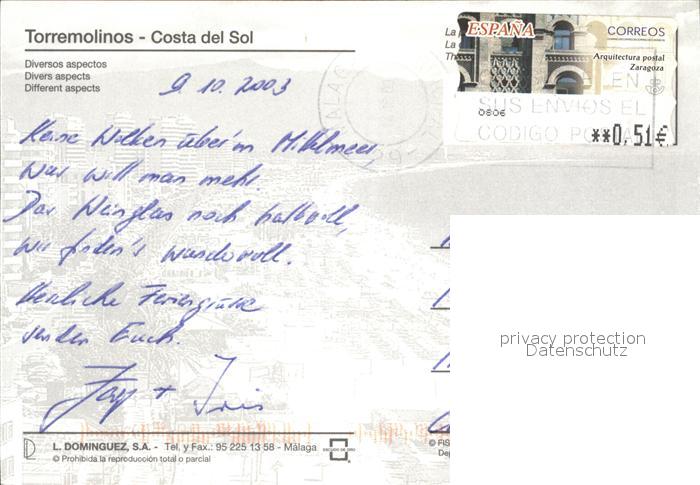 Torremolinos - Costa del Sol
Diversos aspectos
Divers aspects
Different aspects
9.10.2003
Keine Wolken über'm Mittelmeer,
was will man mehr.
Das Weinglas noch halbvoll,
wir finden's wundervoll.
Herzliche Feriengrüsse
senden Euch
+ Iris
ESPAÑA
CORREOS
Arquitectura postal
Zaragoza
0806
EN
SUS ENVIOS EL
CODIGO POSTAL
**0,51€
privacy protection
Datenschutz
L. DOMINGUEZ, S.A. - Tel. y Fax.: 95 225 13 58 - Málaga
© Prohibida la reproducción total o parcial
ESCUDO DE ORO
© FIS
Dep